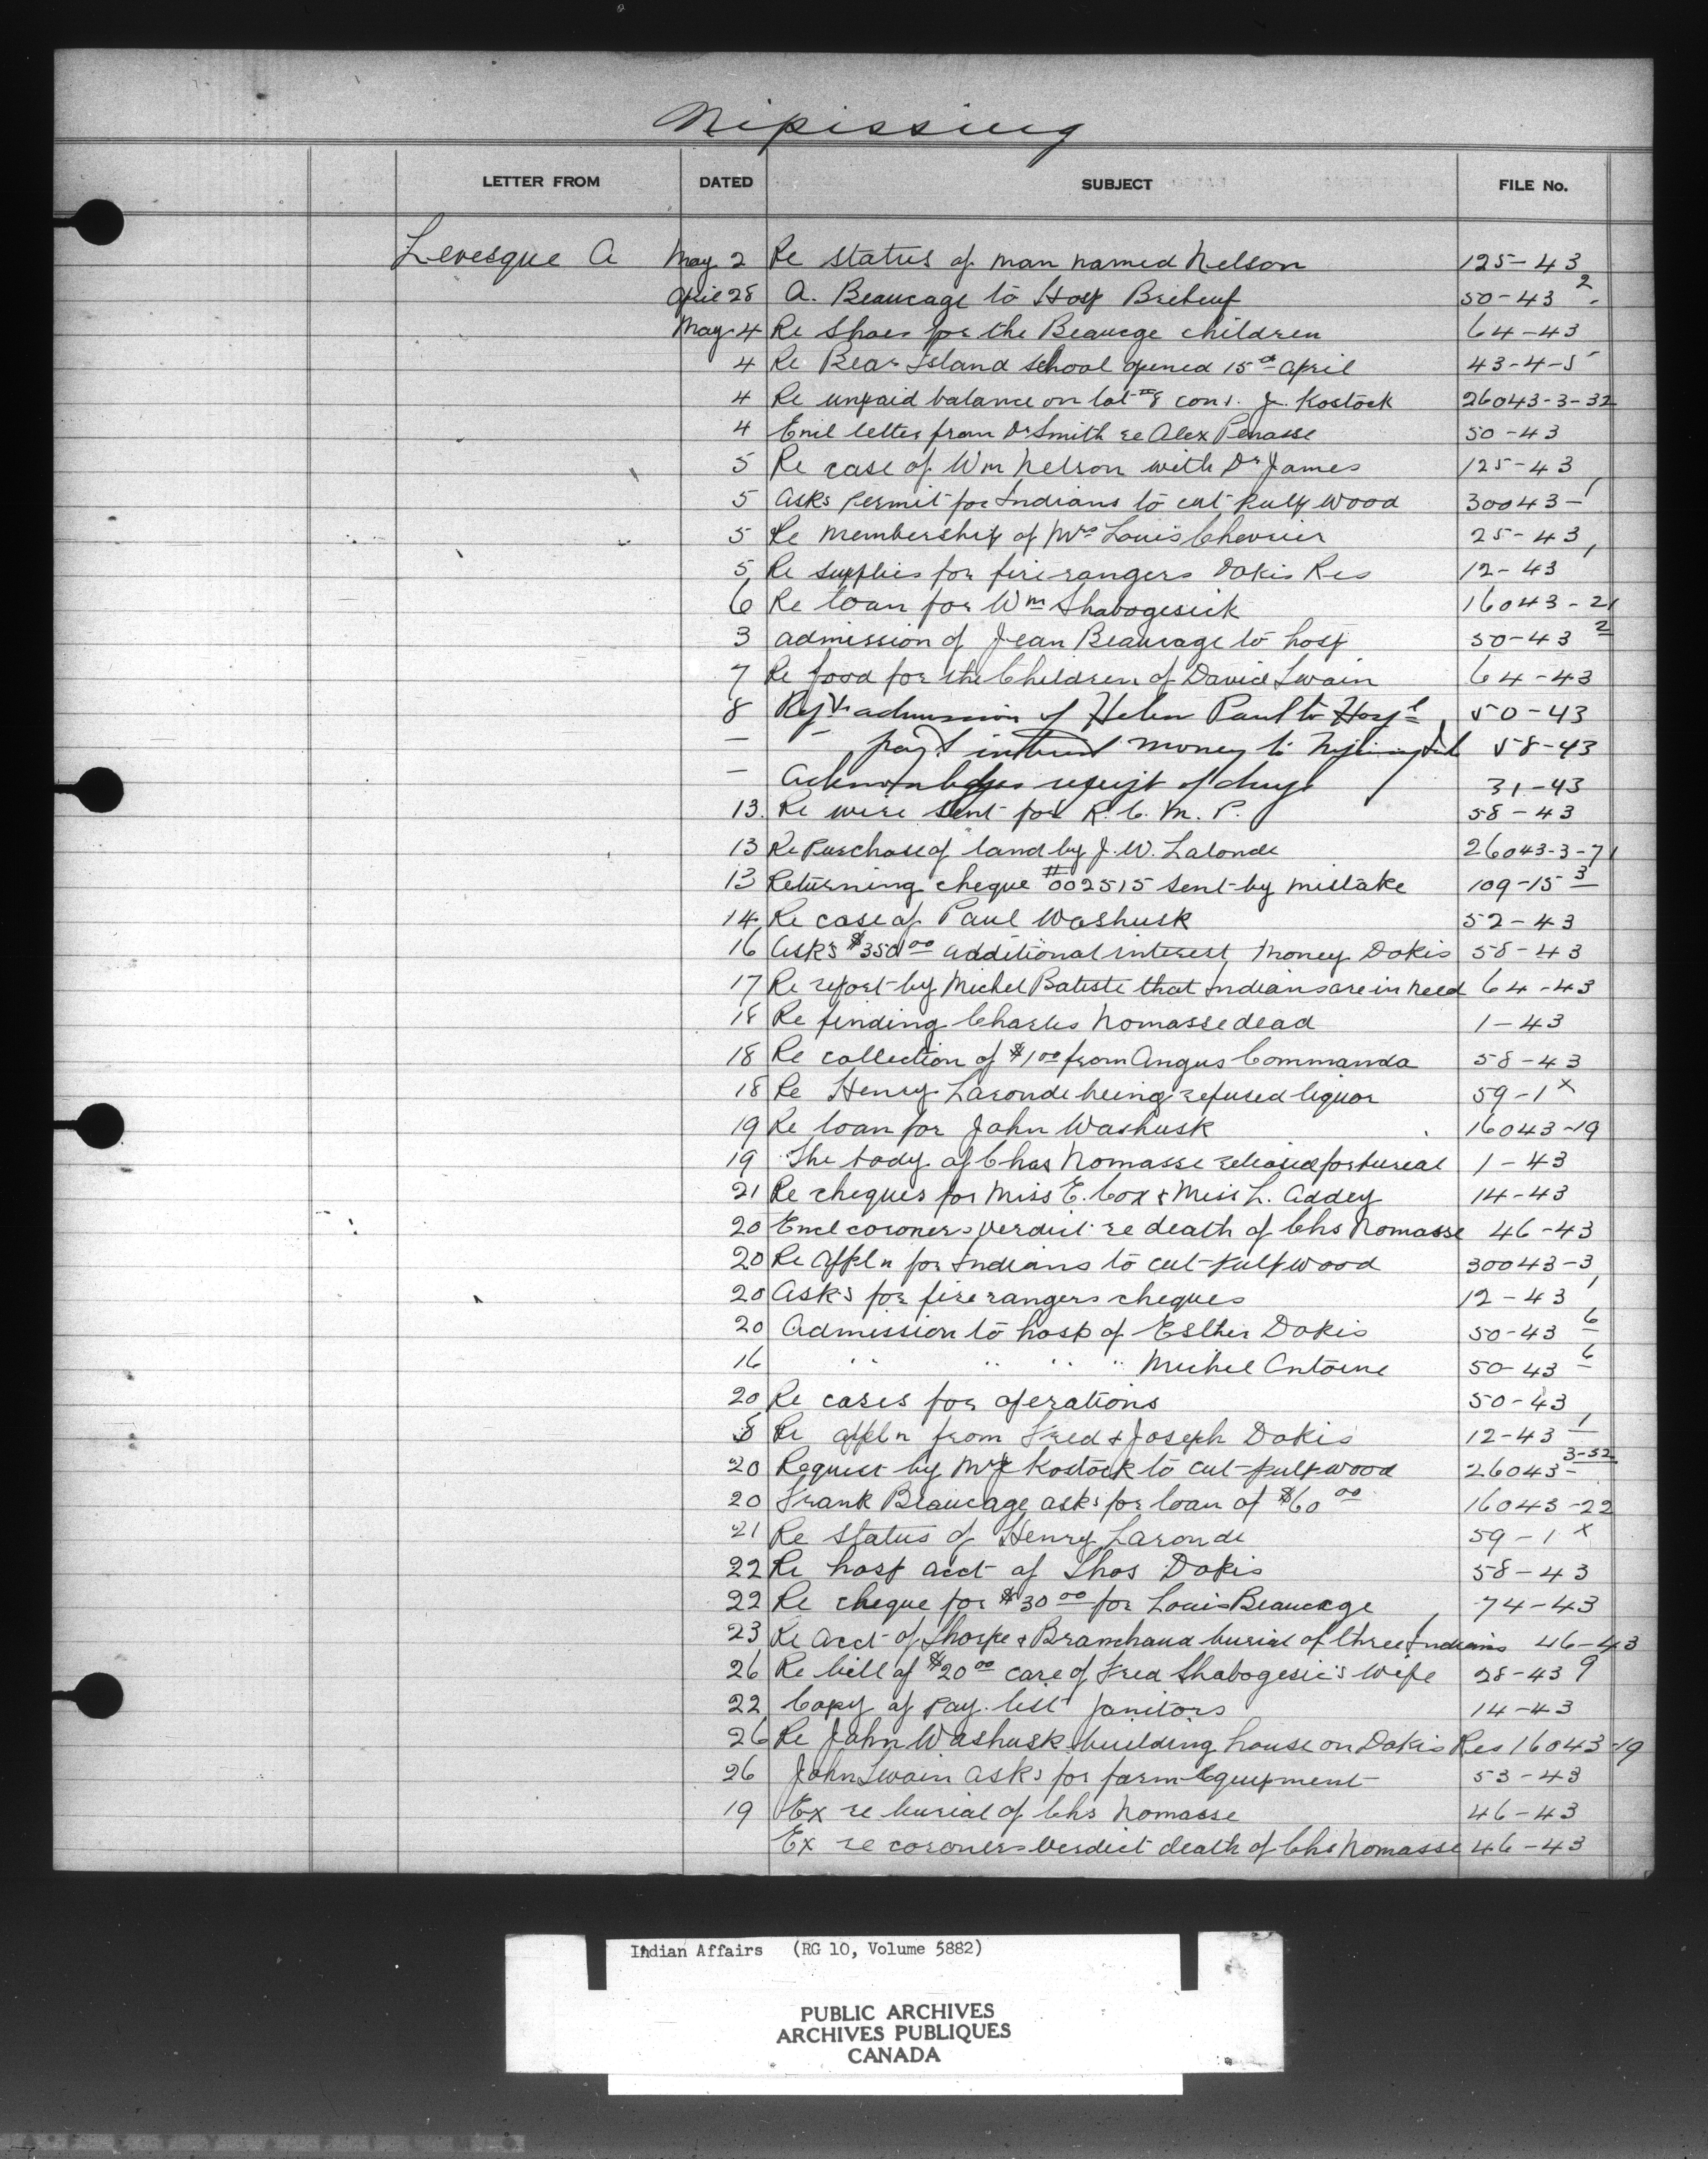 Nipissing
LETTER FROM DATED SUBJECT FILE No.
Levesque A May 2 Re status of man named Nelson 125-43
April 28 A. Beaucage to Hosp Brebeuf 50-43 2
May 4 Re Shoes for the Beaucge children 64-43
4 Re Bear Island school opened 15th April 43-4-5
4 Re unpaid balance on lot #8 con 1. J. Kostock 26043-3-32
4 Encl letter from Dr Smith re Alex Penasse 50-43
5 Re case of Wm Nelson with Dr James 125-43
5 Asks permit for Indians to cut pulp wood 30043-1
5 Re membership of Mrs Louis Chevrier 25-43
5 Re supplies for fire rangers Dokis Res 12-43 1
6 Re loan for Wm Shabogesick 16043-21
3 admission of Jean Beaucage to hosp 50-43 2
7 Re food for the Children of David Swain 64-43
8 admission of Helen Paul to Hospl 50-43
— — payt interest money to 58-43
— Acknowledges receipt of drugs 31-43
13. Re wire sent for R. C. M. P. 58-43
13 Re Purchase of land by J. W. Lalonde 26043-3-71
13 Returning cheque #002515 sent by mistake 109-15 3
14 Re case of Paul Washusk 52-43
16 Asks $350 00 additional interest money Dokis 58-43
17 Re report by Michel Batiste that Indians are in need 64-43
18 Re finding Charles Nomasse dead 1-43
18 Re collection of $1 00 from Angus Commanda 58-43
18 Re Henry Laronde being refused liquor 59-1 x
19 Re loan for John Washusk 16043-19
19 The body of Chas Nomasse released for bureal 1-43
21 Re cheques for Miss E. Cox & Miss L. Addey 14-43
20 Encl coroners verdict re death of Chs Nomasse 46-43
20 Re appln for Indians to cut pulpwood 30043-3
20 Asks for fire rangers cheques 12-43 1
20 Admission to hosp of Esther Dokis 50-43 6
16 " " " " Michel Antoine 50-43 6
20 Re cases for operations 50-43
Re appln from Fred & Joseph Dokis 12-43 1
20 Request by Mr J Kostock to cut pulpwood 26043-3-32
20 Frank Beaucage asks for loan of $60 00 16043-22
21 Re status of Henry Laronde 59-1 x
22 Re hosp acct of Thos Dokis 58-43
22 Re cheque for $30 00 for Louis Beaucage 74-43
23 Re acct of Thorpe & Branchaud burial of three Indians 46-43
26 Re bill of $20 00 care of Fred Shabogesic's wife 28-43 9
22 Copy of pay list Janitors 14-43
26 Re John Washusk building house on Dokis Res 16043-19
26 John Swain asks for farm equipment 53-43
19 Ex re burial of Chs Nomasse 46-43
Ex re coroners verdict death of Chs Nomasse 46-43
Indian Affairs (RG 10, Volume 5882)
PUBLIC ARCHIVES
ARCHIVES PUBLIQUES
CANADA